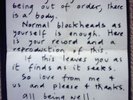 being out of order, there
is a body.
Normal blockheads as
yourself is enough. Here
is your record and a
reproduction of this.
if this leaves you as
it finds as it seeks.
So love from me &
us and please & thanks.
all being well